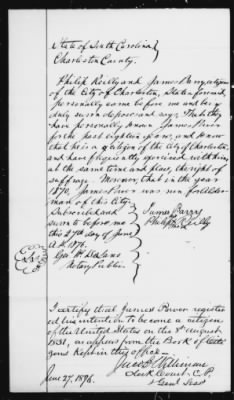 State of South Carolina
Charleston County.
Philip Reilly and James Barry, citizens
of the City of Charleston, State aforesaid
personally came before me and being
duly sworn depose and say: That they
have personally known James Power
for the past eighteen years, and know
that he is a citizen of the City of Charleston,
and have frequently exercised with him,
at the same time and place, the right of
suffrage. Moreover, that in the year
1870, James Power was run for Alder-
man of this City.
Subscribed and
sworn to before me,
this 27th day of June
A.D. 1876.
Notary Public
James Barry
Philip Reilly
I certify that James Power registered
his intention to become a citizen
of the United States on the
as appears from the Book of Citi
zens kept in this office
Clerk Court, C.P.
& Genl Sess
June 27, 1876.